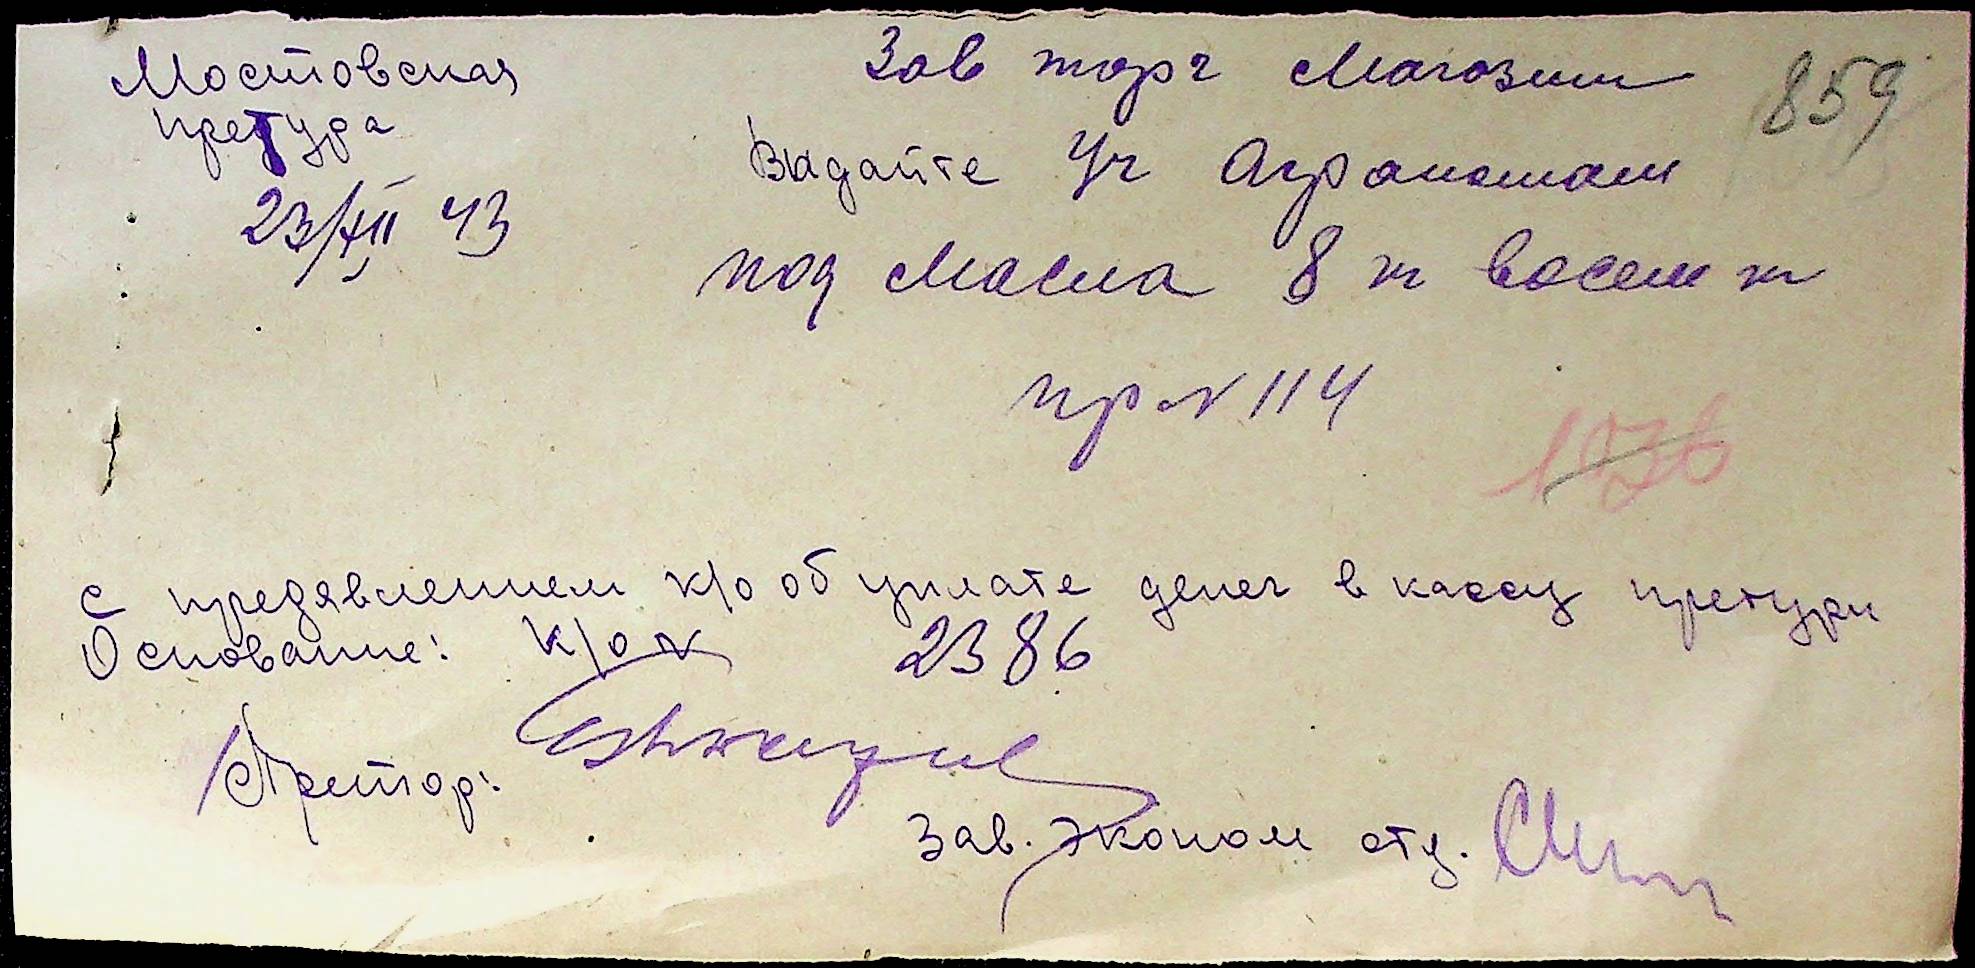 Мостовская
претура
23/XII 43
859
Зав торг Магозин
Выдайте Уч Агрономам
под Масла 8 кг восем кг
пр № 114
1036
с предявлением к/о об уплате денег в кассу претуры
Основание: к/о № 2386
Претор:
Зав. эконом отд.